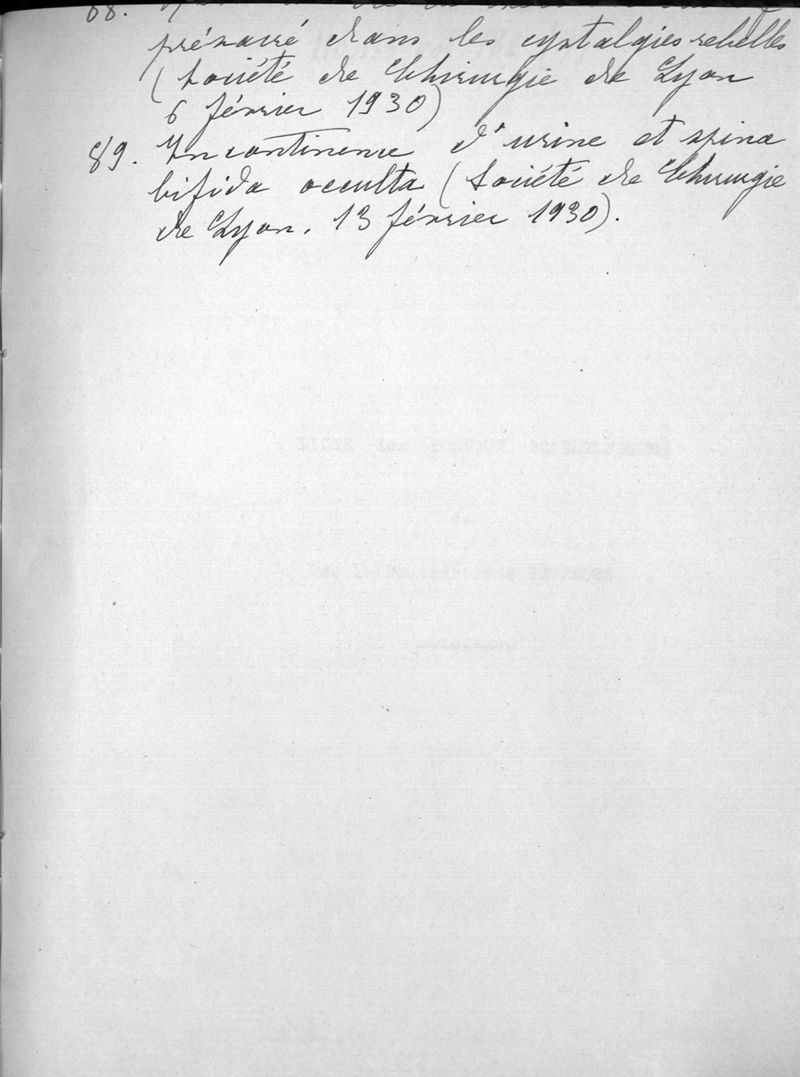 88.
présacré dans les cystalgies rebelles
(Société de Chirurgie de Lyon
6 février 1930)
89. Incontinence d'urine et spina
bifida occulta (Société de Chirurgie
de Lyon, 13 février 1930).